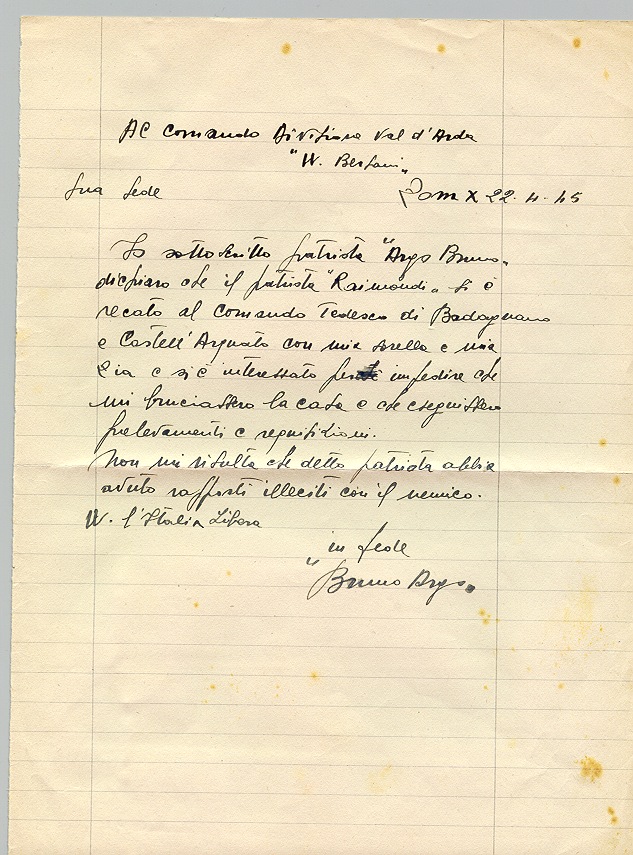 Al Comando Divisione Val d'Arda
"W. Bersani"
Sua Sede
Zona X 22.4.45
Io sottoscritto patriota "Argo Bruno"
dichiaro che il patriota "Raimondi" si è
recato al Comando Tedesco di Badagnano
e Castell'Arquato con mia sorella e mia
zia e si è interessato per impedire che
mi bruciassero la casa e che eseguissero
prelevamenti e requisizioni.
Non mi risulta che detto patriota abbia
avuto rapporti illeciti con il nemico.
W. l'Italia Libera
in fede
"Bruno Argo"